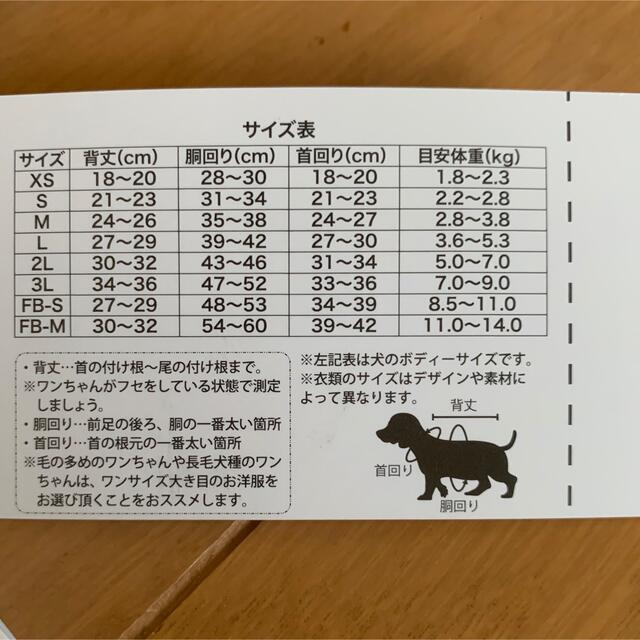 サイズ表
サイズ 背丈(cm) 胴回り(cm) 首回り(cm) 目安体重(kg)
XS 18〜20 28〜30 18〜20 1.8〜2.3
S 21〜23 31〜34 21〜23 2.2〜2.8
M 24〜26 35〜38 24〜27 2.8〜3.8
L 27〜29 39〜42 27〜30 3.6〜5.3
2L 30〜32 43〜46 31〜34 5.0〜7.0
3L 34〜36 47〜52 33〜36 7.0〜9.0
FB-S 27〜29 48〜53 34〜39 8.5〜11.0
FB-M 30〜32 54〜60 39〜42 11.0〜14.0
・背丈…首の付け根〜尾の付け根まで。
※ワンちゃんがフセをしている状態で測定
しましょう。
・胴回り…前足の後ろ、胴の一番太い箇所
・首回り…首の根元の一番太い箇所
※毛の多めのワンちゃんや長毛犬種のワン
ちゃんは、ワンサイズ大き目のお洋服を
お選び頂くことをおススメします。
※左記表は犬のボディーサイズです。
※衣類のサイズはデザインや素材に
よって異なります。
背丈
首回り
胴回り